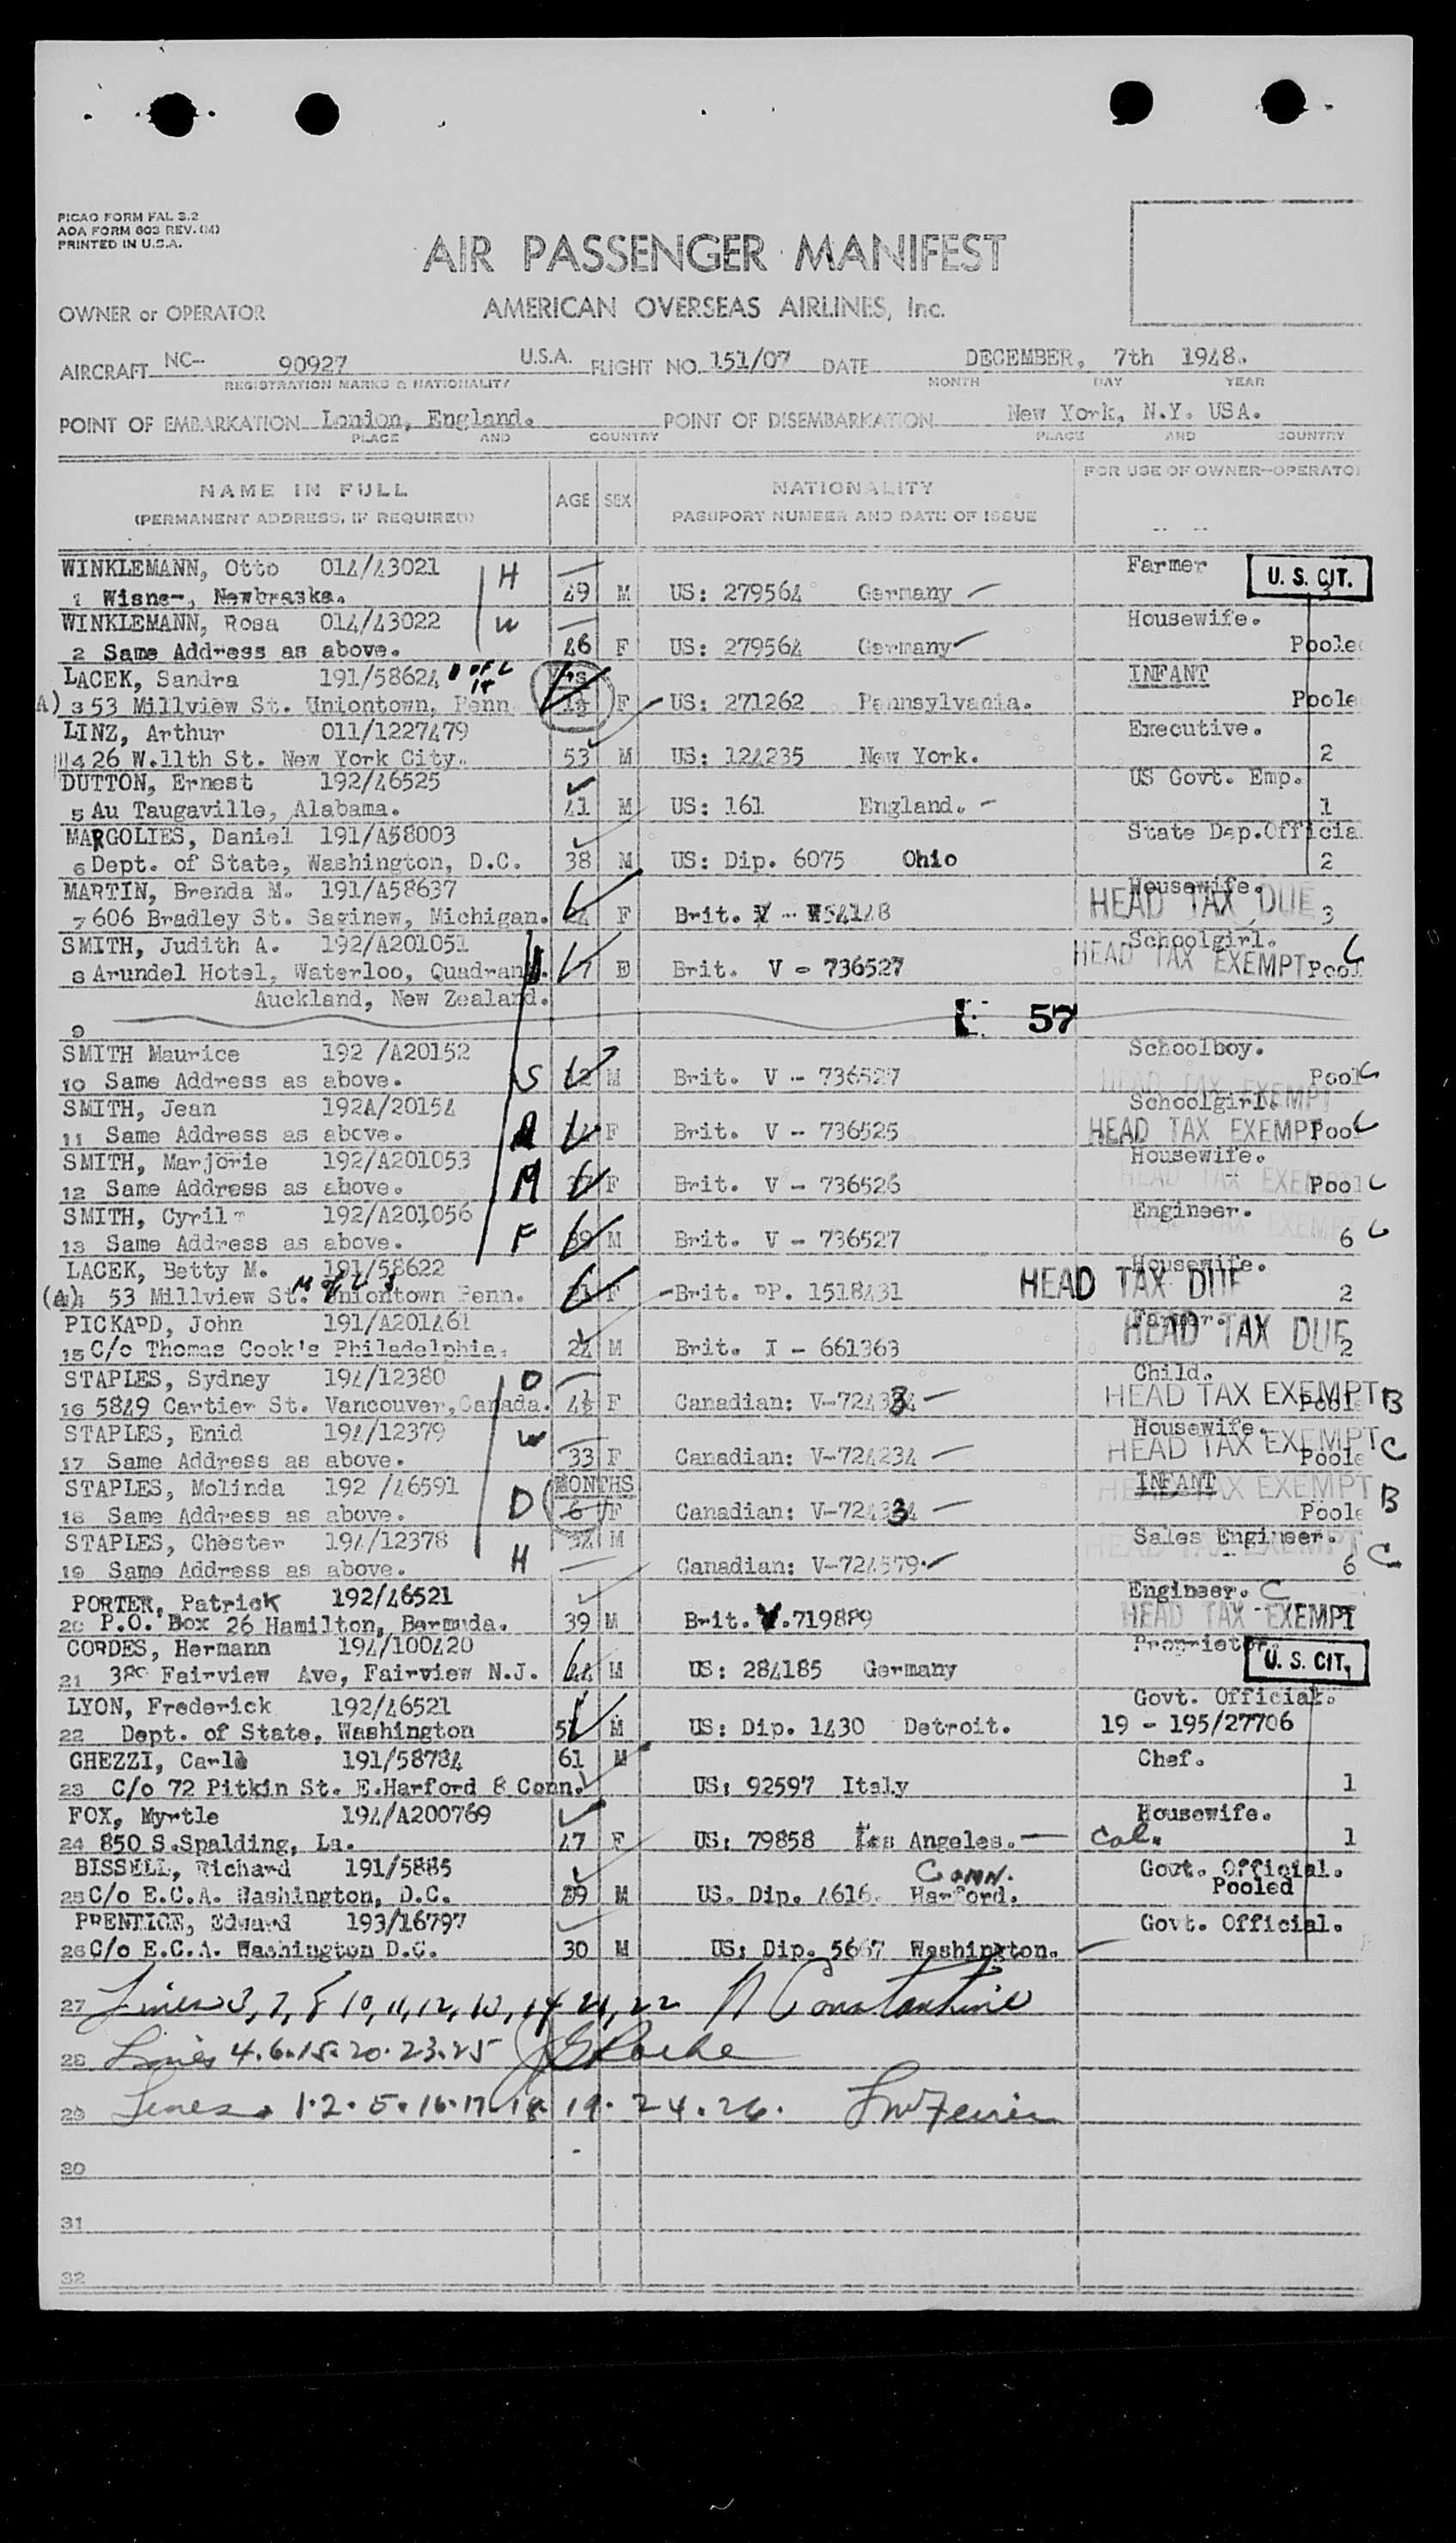 PICAO FORM FAL 3.2
AOA FORM 603 REV. (M)
PRINTED IN U.S.A.
AIR PASSENGER MANIFEST
OWNER or OPERATOR AMERICAN OVERSEAS AIRLINES, Inc.
AIRCRAFT NC- 90927 U.S.A. FLIGHT NO. 151/07 DATE DECEMBER, 7th 1948.
REGISTRATION MARKS & NATIONALITY MONTH DAY YEAR
POINT OF EMBARKATION London, England. POINT OF DISEMBARKATION New York, N.Y. USA.
PLACE AND COUNTRY PLACE AND COUNTRY
NAME IN FULL AGE SEX NATIONALITY FOR USE OF OWNER-OPERATO
(PERMANENT ADDRESS, IF REQUIRED) PASSPORT NUMBER AND DATE OF ISSUE
WINKLEMANN, Otto 014/43021 H Farmer U. S. CIT.
1 Wisne-, Newbraska. 49 M US: 279564 Germany
WINKLEMANN, Rosa 014/43022 W Housewife.
2 Same Address as above. 46 F US: 279564 Germany Poole
LACEK, Sandra 191/58624 INFANT
A) 3 53 Millview St. Uniontown, Penn F US: 271262 Pennsylvania. Poole
LINZ, Arthur 011/1227479 Executive.
4 26 W.11th St. New York City. 53 M US: 124235 New York. 2
DUTTON, Ernest 192/46525 US Govt. Emp.
5 Au Taugaville, Alabama. 41 M US: 161 England. 1
MARGOLIES, Daniel 191/A58003 State Dep.Officia
6 Dept. of State, Washington, D.C. 38 M US: Dip. 6075 Ohio 2
MARTIN, Brenda M. 191/A58637 Housewife. HEAD TAX DUE
7 606 Bradley St. Saginew, Michigan. F Brit. W54148 3
SMITH, Judith A. 192/A201051 Schoolgirl. HEAD TAX EXEMPT C
8 Arundel Hotel, Waterloo, Quadrant. 7 Brit. V - 736527 Pool
Auckland, New Zealand.
9 57
SMITH Maurice 192 /A20152 Schoolboy.
10 Same Address as above. S 12 M Brit. V - 736527 Pool C HEAD TAX EXEMPT
SMITH, Jean 192A/20154 Schoolgirl.
11 Same Address as above. F Brit. V - 736525 HEAD TAX EXEMPT Pool C
SMITH, Marjorie 192/A201053 Housewife.
12 Same Address as above. M F Brit. V - 736526 HEAD TAX EXEMPT Pool C
SMITH, Cyril 192/A201056 Engineer.
13 Same Address as above. F 39 M Brit. V - 736527 6 C
LACEK, Betty M. 191/58622 Housewife. HEAD TAX DUE
53 Millview St. Uniontown Penn. F Brit. PP. 1518431 2
PICKARD, John 191/A201461 Farmer. HEAD TAX DUE
15 C/o Thomas Cook's Philadelphia. 24 M Brit. I - 661363 2
STAPLES, Sydney 194/12380 D Child. HEAD TAX EXEMPT
16 5849 Cartier St. Vancouver, Canada. 4½ F Canadian: Poole B
STAPLES, Enid 194/12379 W Housewife. HEAD TAX EXEMPT
17 Same Address as above. 33 F Canadian: V-724234 Poole C
STAPLES, Molinda 192 /46591 D MONTHS INFANT HEAD TAX EXEMPT
18 Same Address as above. 6 F Canadian: Poole B
STAPLES, Chester 194/12378 H M Sales Engineer. HEAD TAX EXEMPT
19 Same Address as above. Canadian: V-724579. 6 C
PORTER, Patrick 192/46521 Engineer. C
20 P.O. Box 26 Hamilton, Bermuda. 39 M Brit. V.719889 HEAD TAX EXEMPT
CORDES, Hermann 194/100420 Proprietor. U. S. CIT.
21 Fairview Ave, Fairview N.J. 44 M US: 284185 Germany
LYON, Frederick 192/46521 Govt. Official.
22 Dept. of State, Washington M US: Dip. 1430 Detroit. 19 - 195/27706
GHEZZI, Carlo 191/58784 61 M Chef.
23 C/o 72 Pitkin St. E.Harford 8 Conn. US: 92597 Italy 1
FOX, Myrtle 194/A200769 Housewife.
24 850 S.Spalding, La. 47 F US: 79858 Los Angeles. Cal. 1
BISSELL, Richard 191/5885 Conn. Govt. Official.
25 C/o E.C.A. Washington, D.C. 39 M US. Dip. 4616. Harford. Pooled
PRENTICE, Edward 193/16797 Govt. Official.
26 C/o E.C.A. Washington D.C. 30 M US: Dip. 5667 Washington.
27 Lines 3, 7, 8, 10, 11, 12, 13, 14 21, 22 N Constantine
28 Lines 4.6.15.20.23.25
29 Lines 1.2.5.16.17.18. 19.24.26.
30
31
32